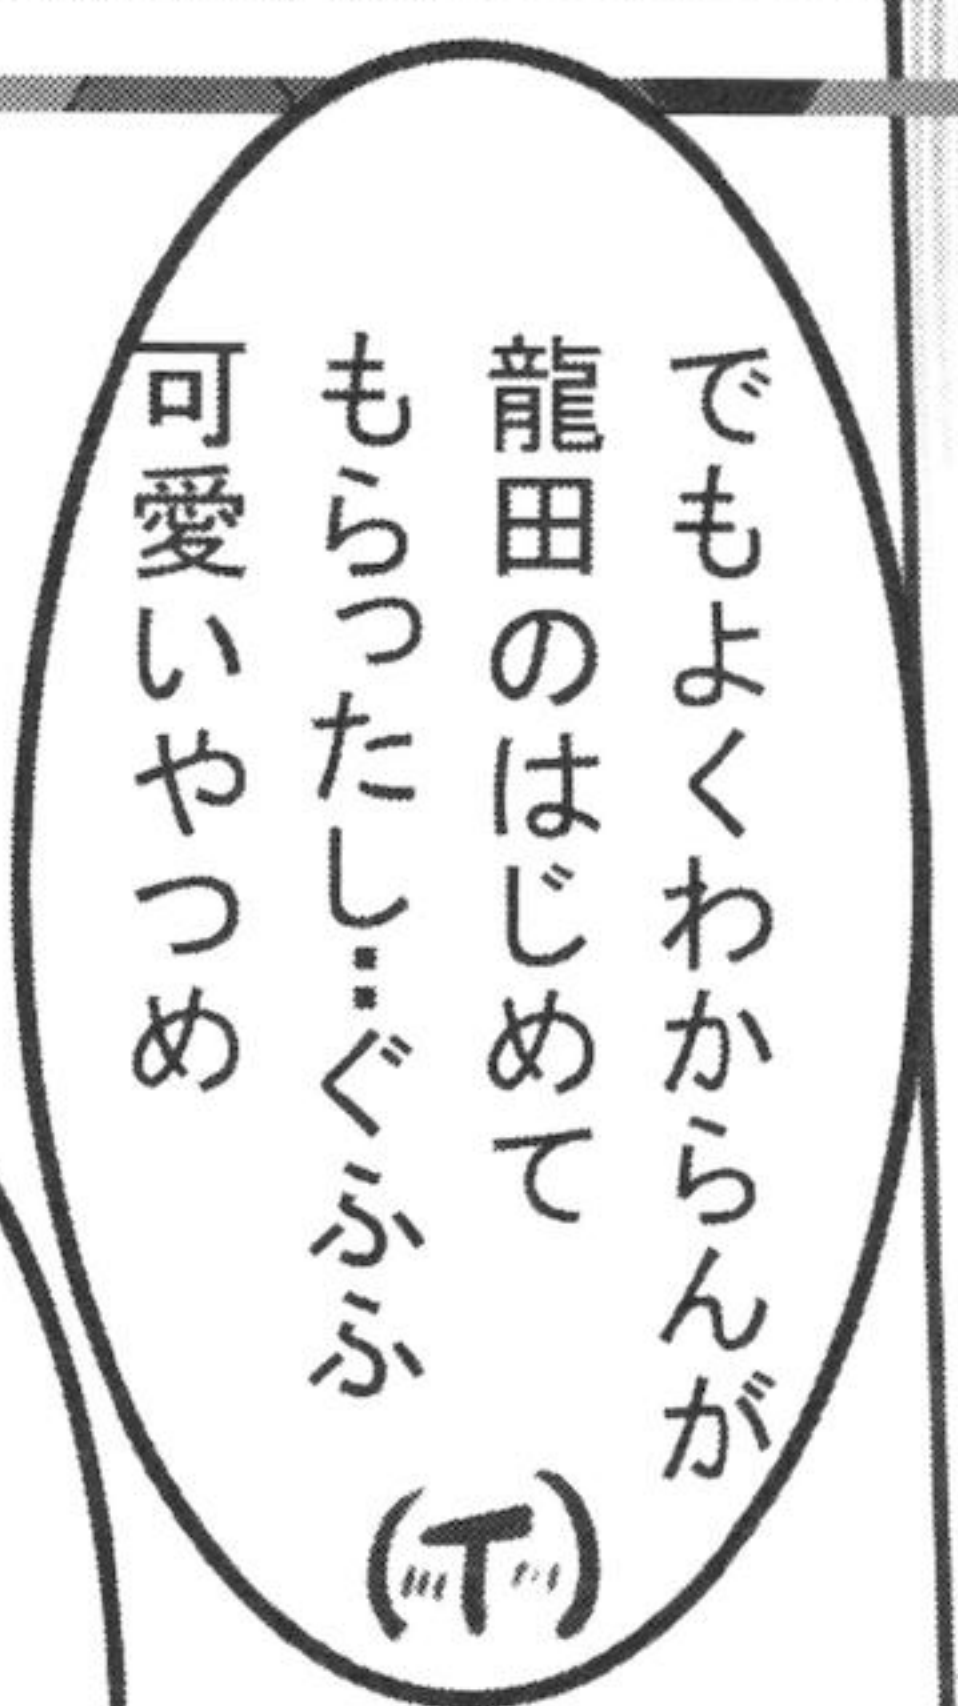 でもよくわからんが
龍田のはじめて
もらったし‥ぐふふ
可愛いやつめ